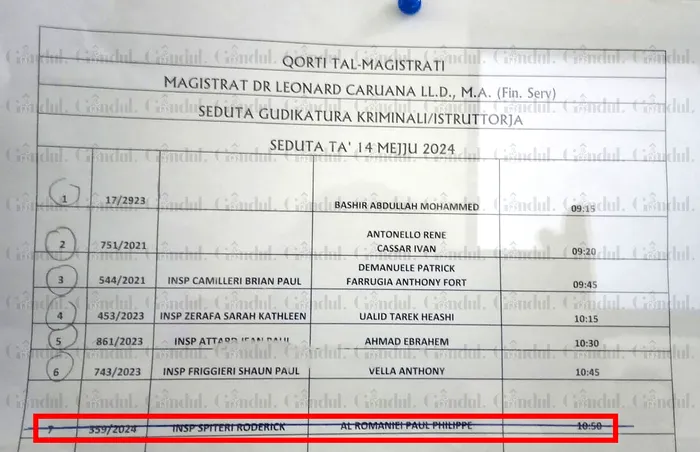 QORTI TAL-MAGISTRATI
MAGISTRAT DR LEONARD CARUANA LL.D., M.A. (Fin. Serv)
SEDUTA GUDIKATURA KRIMINALI/ISTRUTTORJA
SEDUTA TA' 14 MEJJU 2024
1 17/2923 BASHIR ABDULLAH MOHAMMED 09:15
ANTONELLO RENE
2 751/2021 CASSAR IVAN 09:20
DEMANUELE PATRICK
3 544/2021 INSP CAMILLERI BRIAN PAUL FARRUGIA ANTHONY FORT 09:45
4 453/2023 INSP ZERAFA SARAH KATHLEEN UALID TAREK HEASHI 10:15
5 861/2023 INSP ATTARD JEAN PAUL AHMAD EBRAHEM 10:30
6 743/2023 INSP FRIGGIERI SHAUN PAUL VELLA ANTHONY 10:45
7 359/2024 INSP SPITERI RODERICK AL ROMANIEI PAUL PHILIPPE 10:50
Gândul.